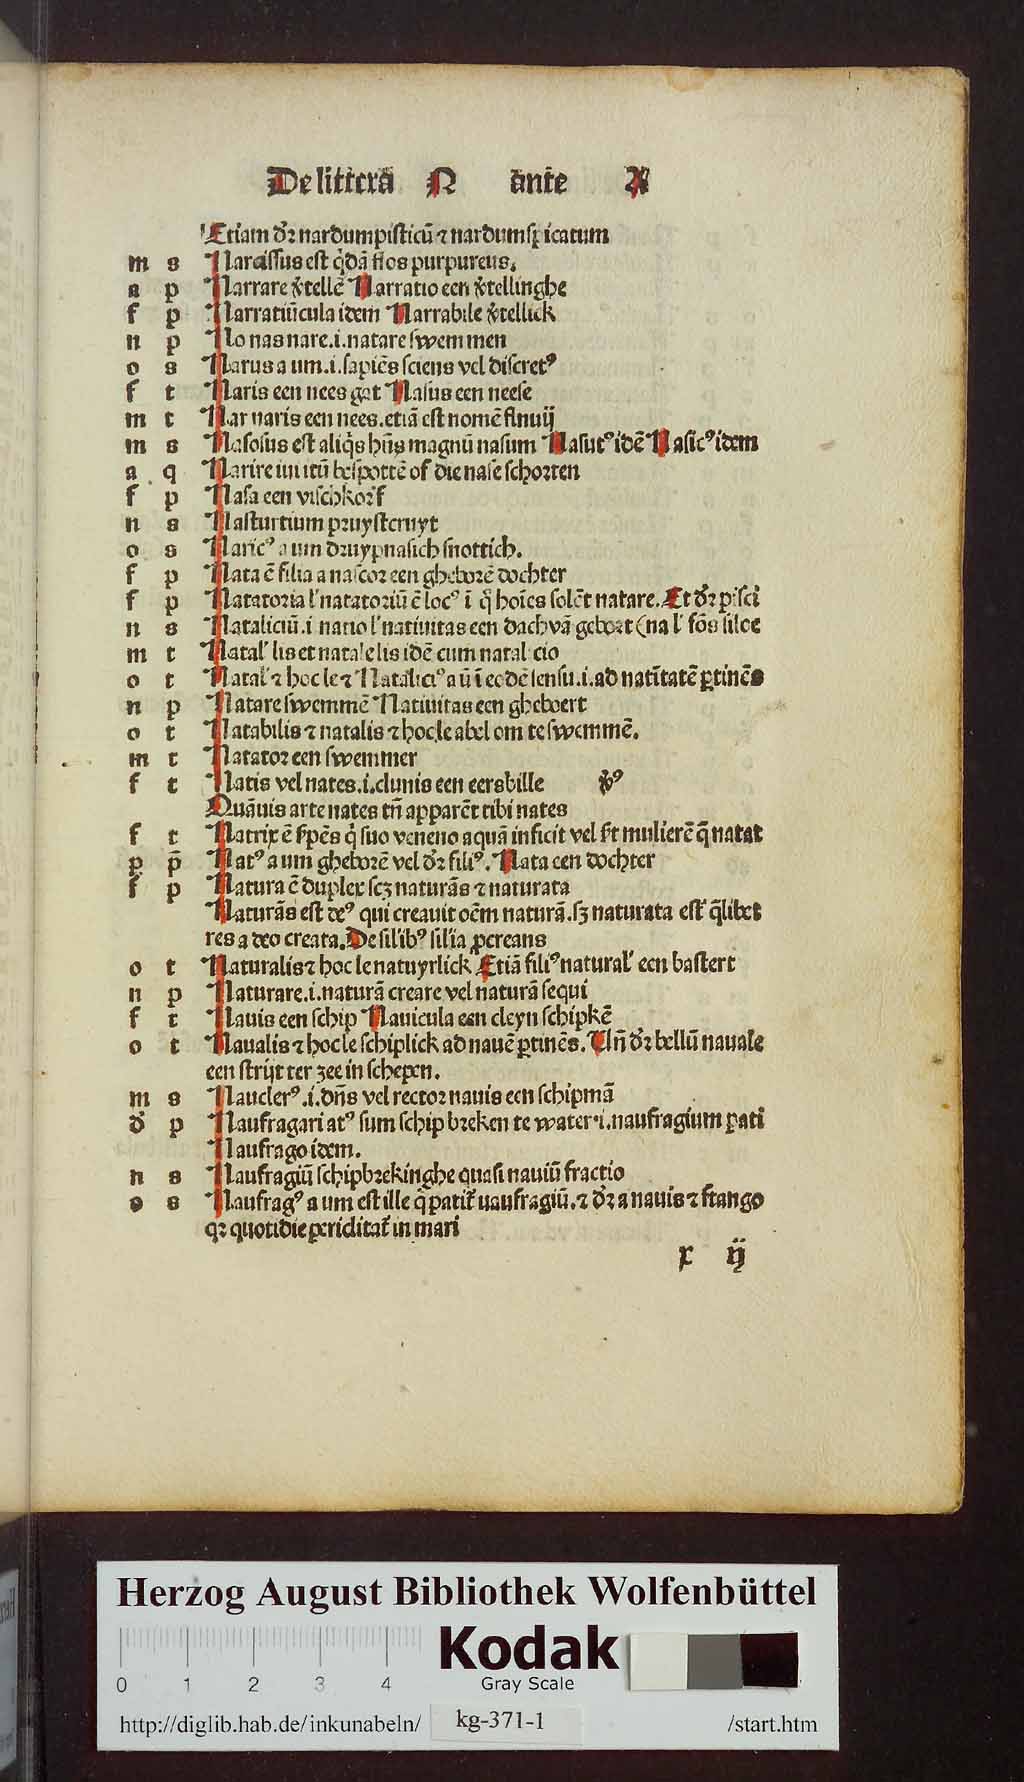 De litterā N ante A
Etiam dr̄ nardumpisticū ⁊ nardumspicatum
m s Narcissus est q̇dā flos purpureus.
a p Narrare v̄tellē Narratio een v̄tellinghe
f p Narratiūcula idem Narrabile v̄tellick
n p No nas nare .i. natare swemmen
o s Narus a um .i. sapiēs sciens vel discretꝰ
f t Naris een nees gat Nasus een neese
m t Nar naris een nees. etiā est nomē fluuij
m s Nasosus est aliq̇s hn̄s magnū nasum Nasutꝰ idē Nasicꝰ idem
a q Narire iui itū bespottē of die nase schorten
f p Nasa een vischkorf
n s Nasturtium pruysteruyt
o s Naricꝰ a um druypnasich snottich.
f p Nata ē filia a nascor een gheborē dochter
f p Natatoria l' natatoriū ē locꝰ ī q̄ hoīes solēt natare. Et dr̄ piscī
n s Nataliciū .i natio l' natiuitas een dach vā gebort (na l' fōs siloe
m t Natal' lis et natale lis idē cum natalicio
o t Natal' ⁊ hoc le ⁊ Nataliciꝰ a ū ī eodē sensu .i. ad natītatē ꝑtinēs
n p Natare swemmē Natiuitas een gheboert
o t Natabilis ⁊ natalis ⁊ hoc le abel om te swemmē.
m t Natator een swemmer
f t Natis vel nates .i. clunis een eersbille v̄ꝰ
Quāuis arte nates tn̄ apparēt tibi nates
f t Natrix ē s̄pēs q̇ suo veneno aquā inficit vel s̄t mulierē q̄ natat
p p̄ Natꝰ a um gheborē vel dr̄ filiꝰ. Nata een dochter
f p Natura ē duplex scꝫ naturās ⁊ naturata
Naturās est deꝰ qui creauit oēm naturā. sꝫ naturata est q̄libet
res a deo creata. De silibꝰ silīa ꝓcreans
o t Naturalis ⁊ hoc le natuyrlick Etiā filiꝰ natural' een bastert
n p Naturare .i. naturā creare vel naturā sequi
f t Nauis een schip Nauicula een cleyn schipkē
o t Naualis ⁊ hoc le schiplick ad nauē ꝑtinēs. Vn̄ dr̄ bellū nauale
een strijt ter zee in schepen.
m s Nauclerꝰ .i. dn̄s vel rector nauis een schipmā
d̄ p Naufragari atꝰ sum schip breken te water .i. naufragium pati
Naufrago idem.
n s Naufragiū schipbrekinghe quasi nauiū fractio
o s Naufragꝰ a um est ille q̇ patit̄ uaufragiū. ⁊ dr̄ a nauis ⁊ frango
qꝛ quotidie periclitat̄ in mari
x ij
Herzog August Bibliothek Wolfenbüttel
Kodak
Gray Scale
0 1 2 3 4
http://diglib.hab.de/inkunabeln/ kg-371-1 /start.htm